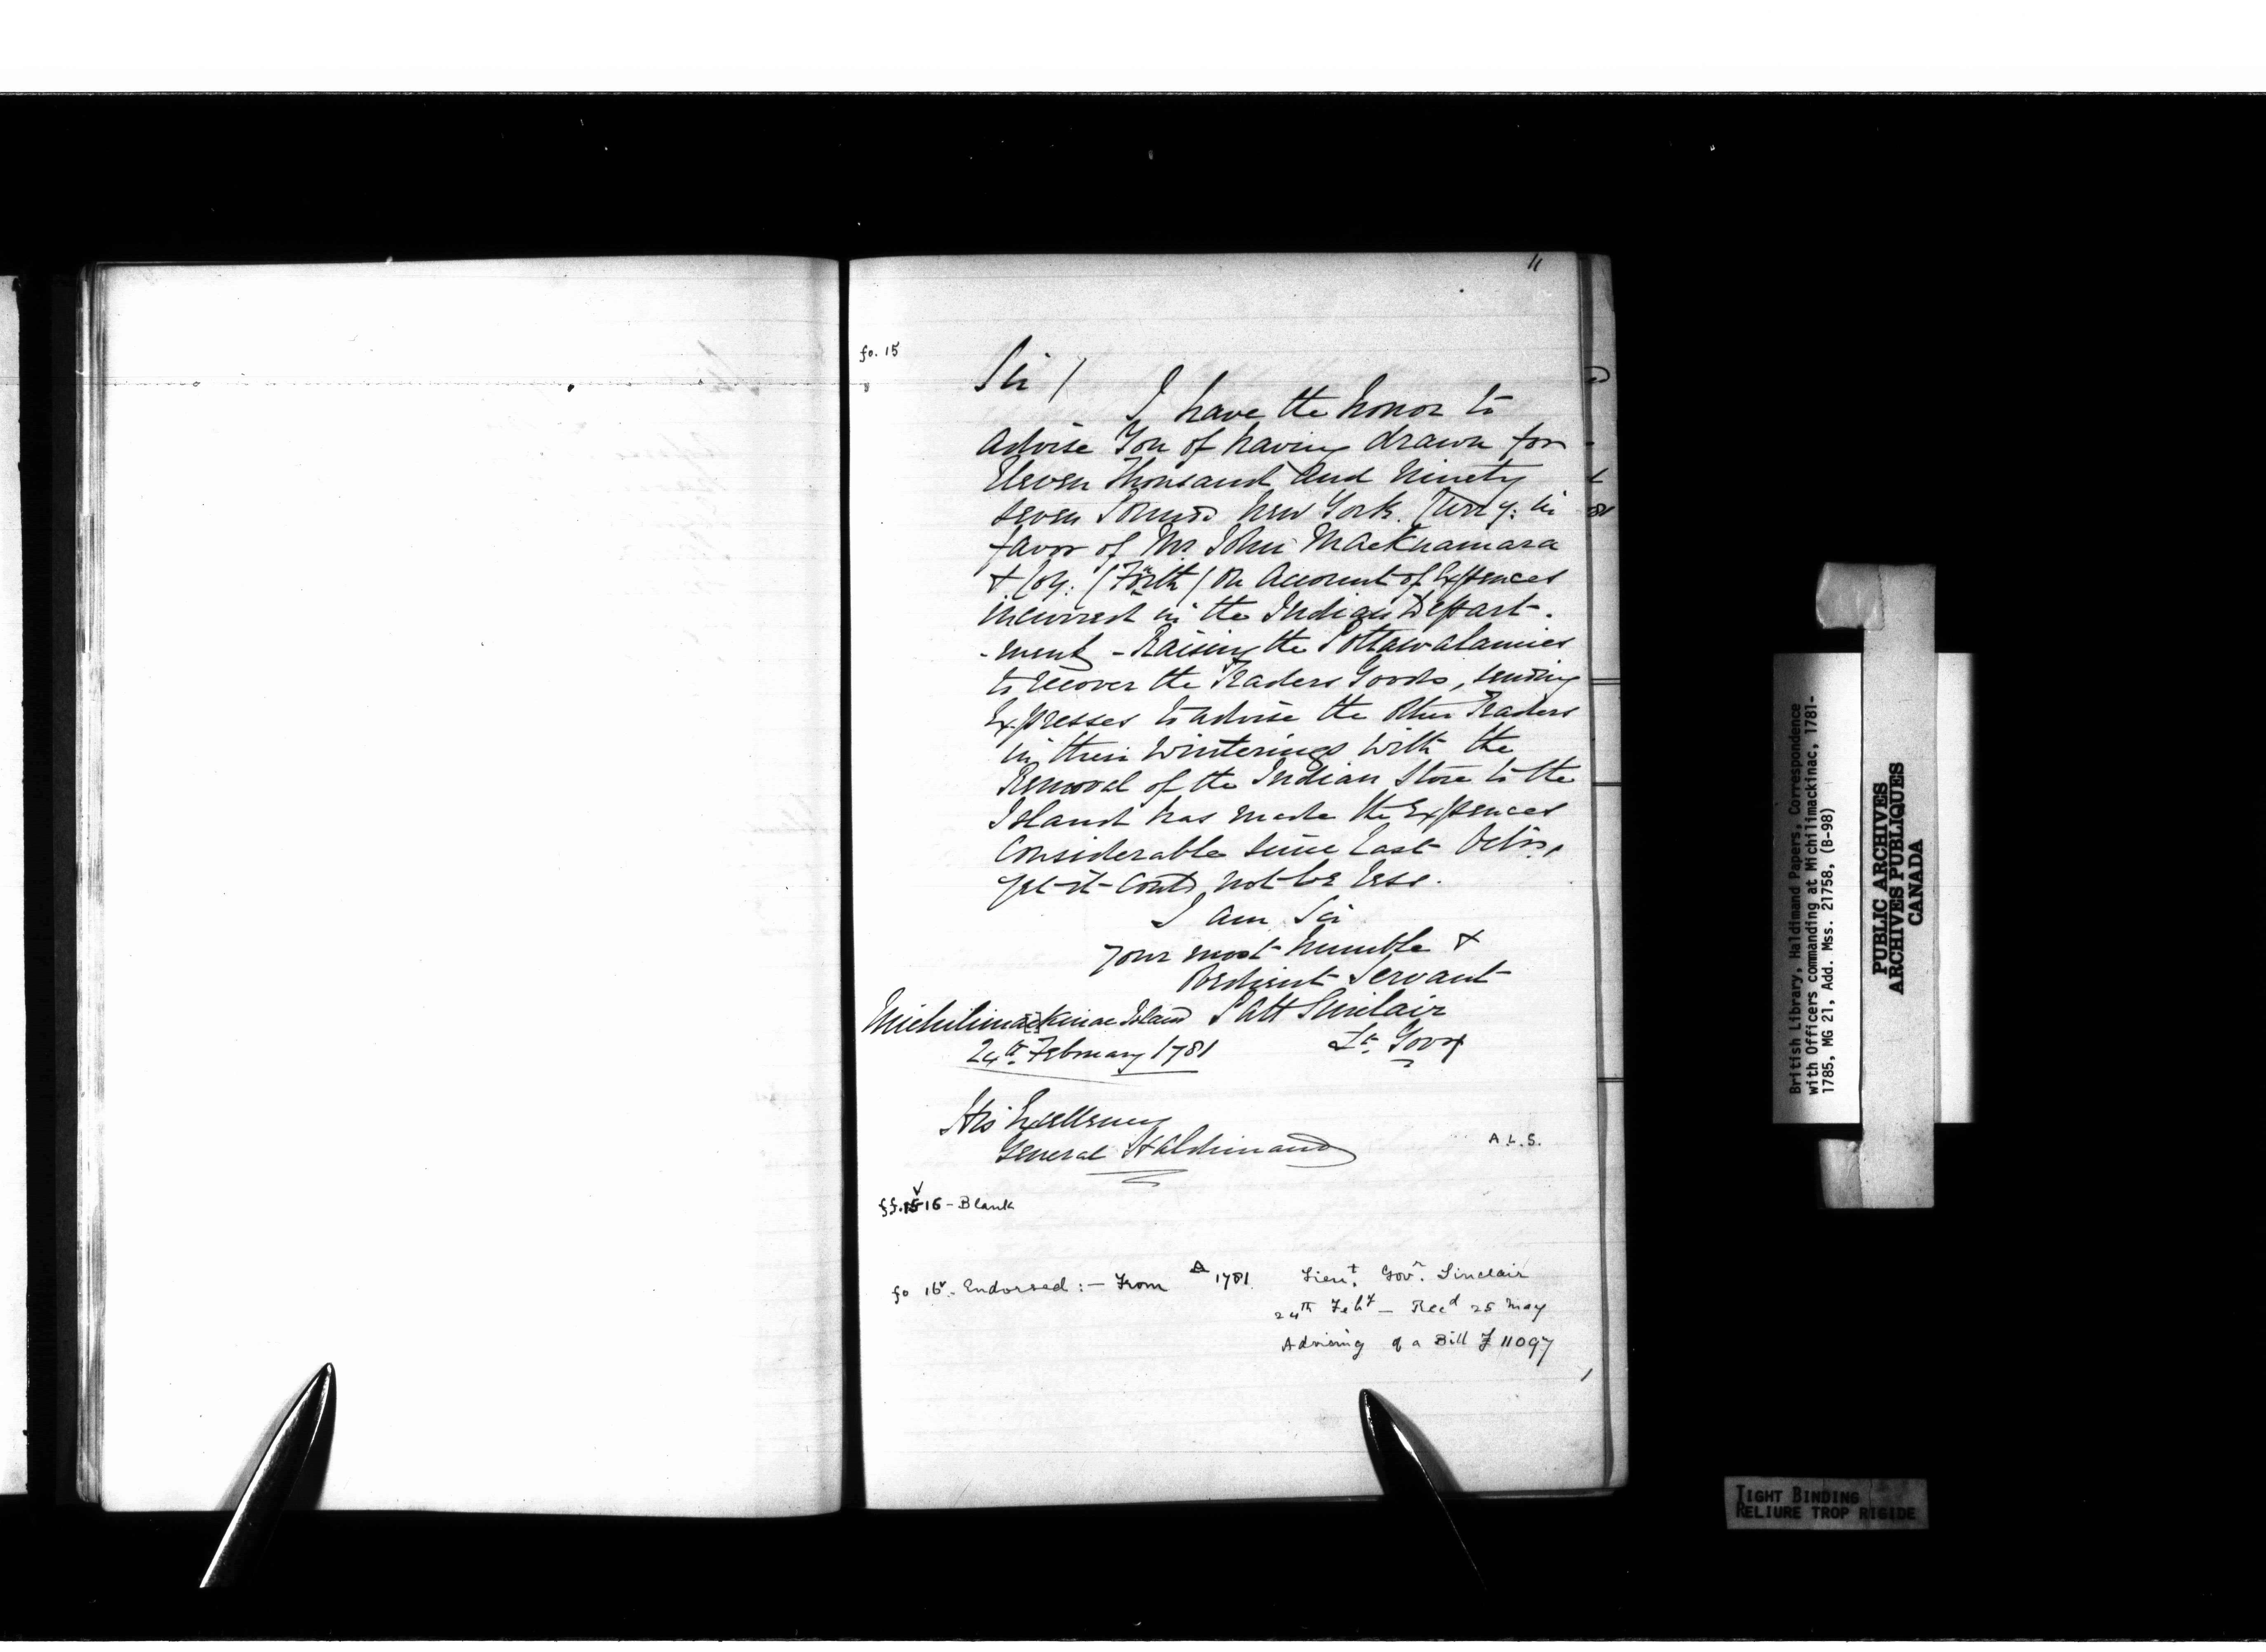 11
fo. 15
Sir /
I have the honor to
advise You of having drawn for
Eleven Thousand And Ninety
seven Pounds New York Curry: in
favor of Mr. John Macknamara
& Coy: (North) on Account of Expences
incurred in the Indian Depart-
-ment - Raising the Pottawatamies
to recover the Traders Goods, sending
Expresses to advise the other Traders
in their winterings with the
Removal of the Indian Store to the
Island has made the Expences
Considerable since last Octbr.
yet it could not be less.
I am Sir
your most humble &
Obedient Servant
Michilimackinac Island Patt Sinclair
24th. February 1781 Lt. Govr
His Excellency
General Haldimand
A.L.S.
ff. 15v 16 - Blank
fo 16v. Endorsed :- From A 1781 Lieut. Govr. Sinclair
24th Feby - Recd 25 May
Advising of a Bill £ 11097
British Library, Haldimand Papers, Correspondence
with Officers commanding at Michilimackinac, 1781-
1785, MG 21, Add. Mss. 21758, (B-98)
PUBLIC ARCHIVES
ARCHIVES PUBLIQUES
CANADA
TIGHT BINDING
RELIURE TROP RIGIDE